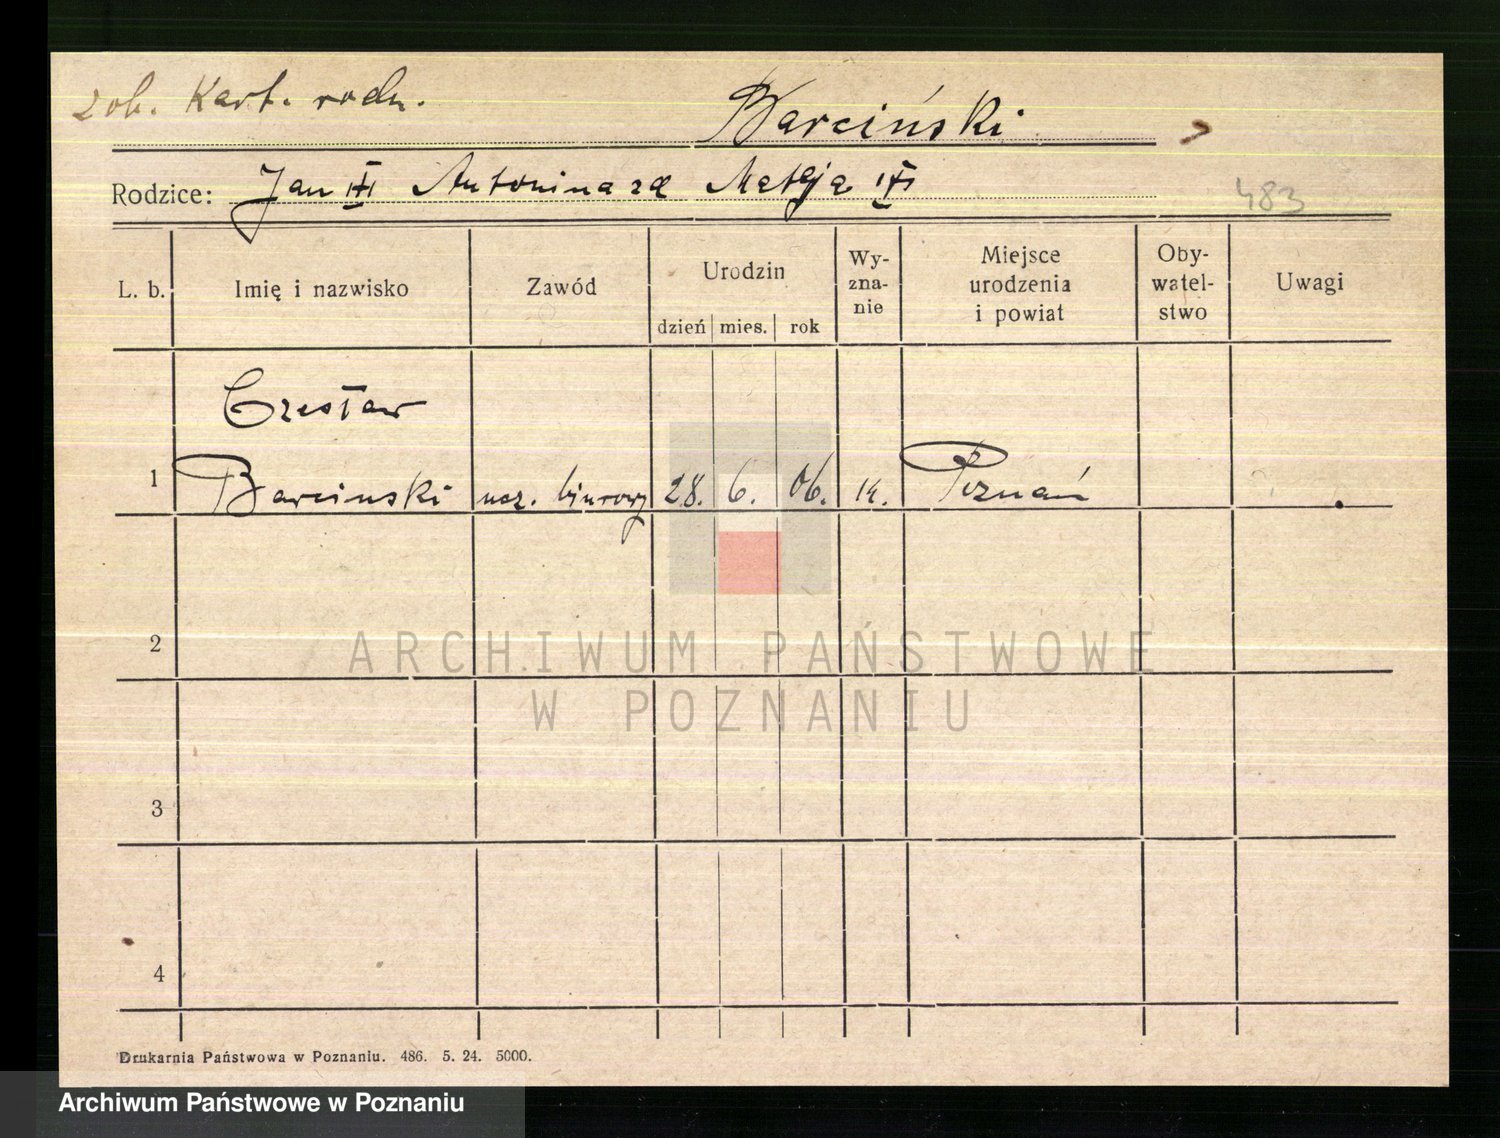 zob. Kart. rodz.
Barciński
Rodzice: Jan III Antonina zd Mateja IV
483
L. b. Imię i nazwisko Zawód Urodzin Wy-zna-nie Miejsce urodzenia i powiat Oby-watel-stwo Uwagi
dzień mies. rok
Czesław
1 Barcinski ucz. biurowy 28. 6. 06. k. Poznań
2
ARCHIWUM PAŃSTWOWE
W POZNANIU
3
4
Drukarnia Państwowa w Poznaniu. 486. 5. 24. 5000.
Archiwum Państwowe w Poznaniu